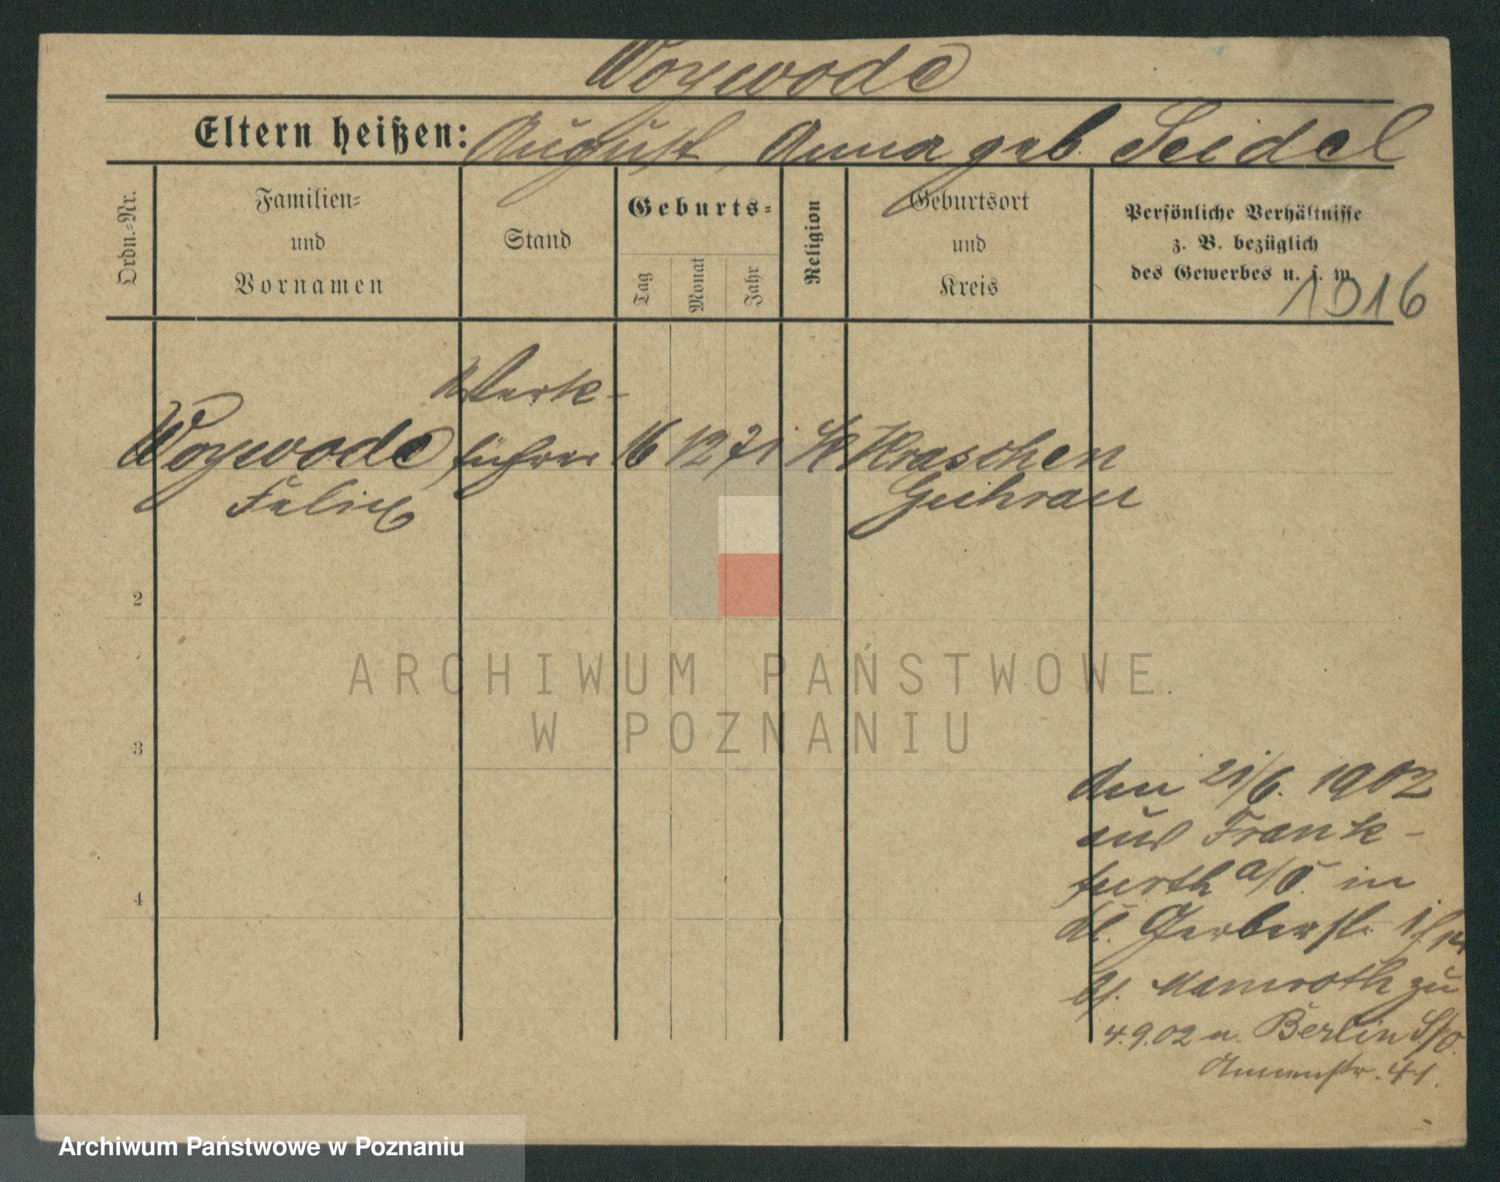 Woywode
Eltern heißen: August, Anna geb. Seidel
Ordn.-Nr.
Familien-
und
Vornamen
Stand
Geburts-
Tag
Monat
Jahr
Religion
Geburtsort
und
Kreis
Persönliche Verhältnisse
z. B. bezüglich
des Gewerbes u. s. w.
1916
Werk-
Woywode führer 16 12 71 Kraschen
Felix Guhrau
2
ARCHIWUM PAŃSTWOWE
W POZNANIU
3
Am 21/6. 1902
aus Frank-
furth a/O. in
4
kl. Gerberstr.
bei Mamroth zu
4.9.02 n. Berlin S/O.
Annenstr. 41.
Archiwum Państwowe w Poznaniu